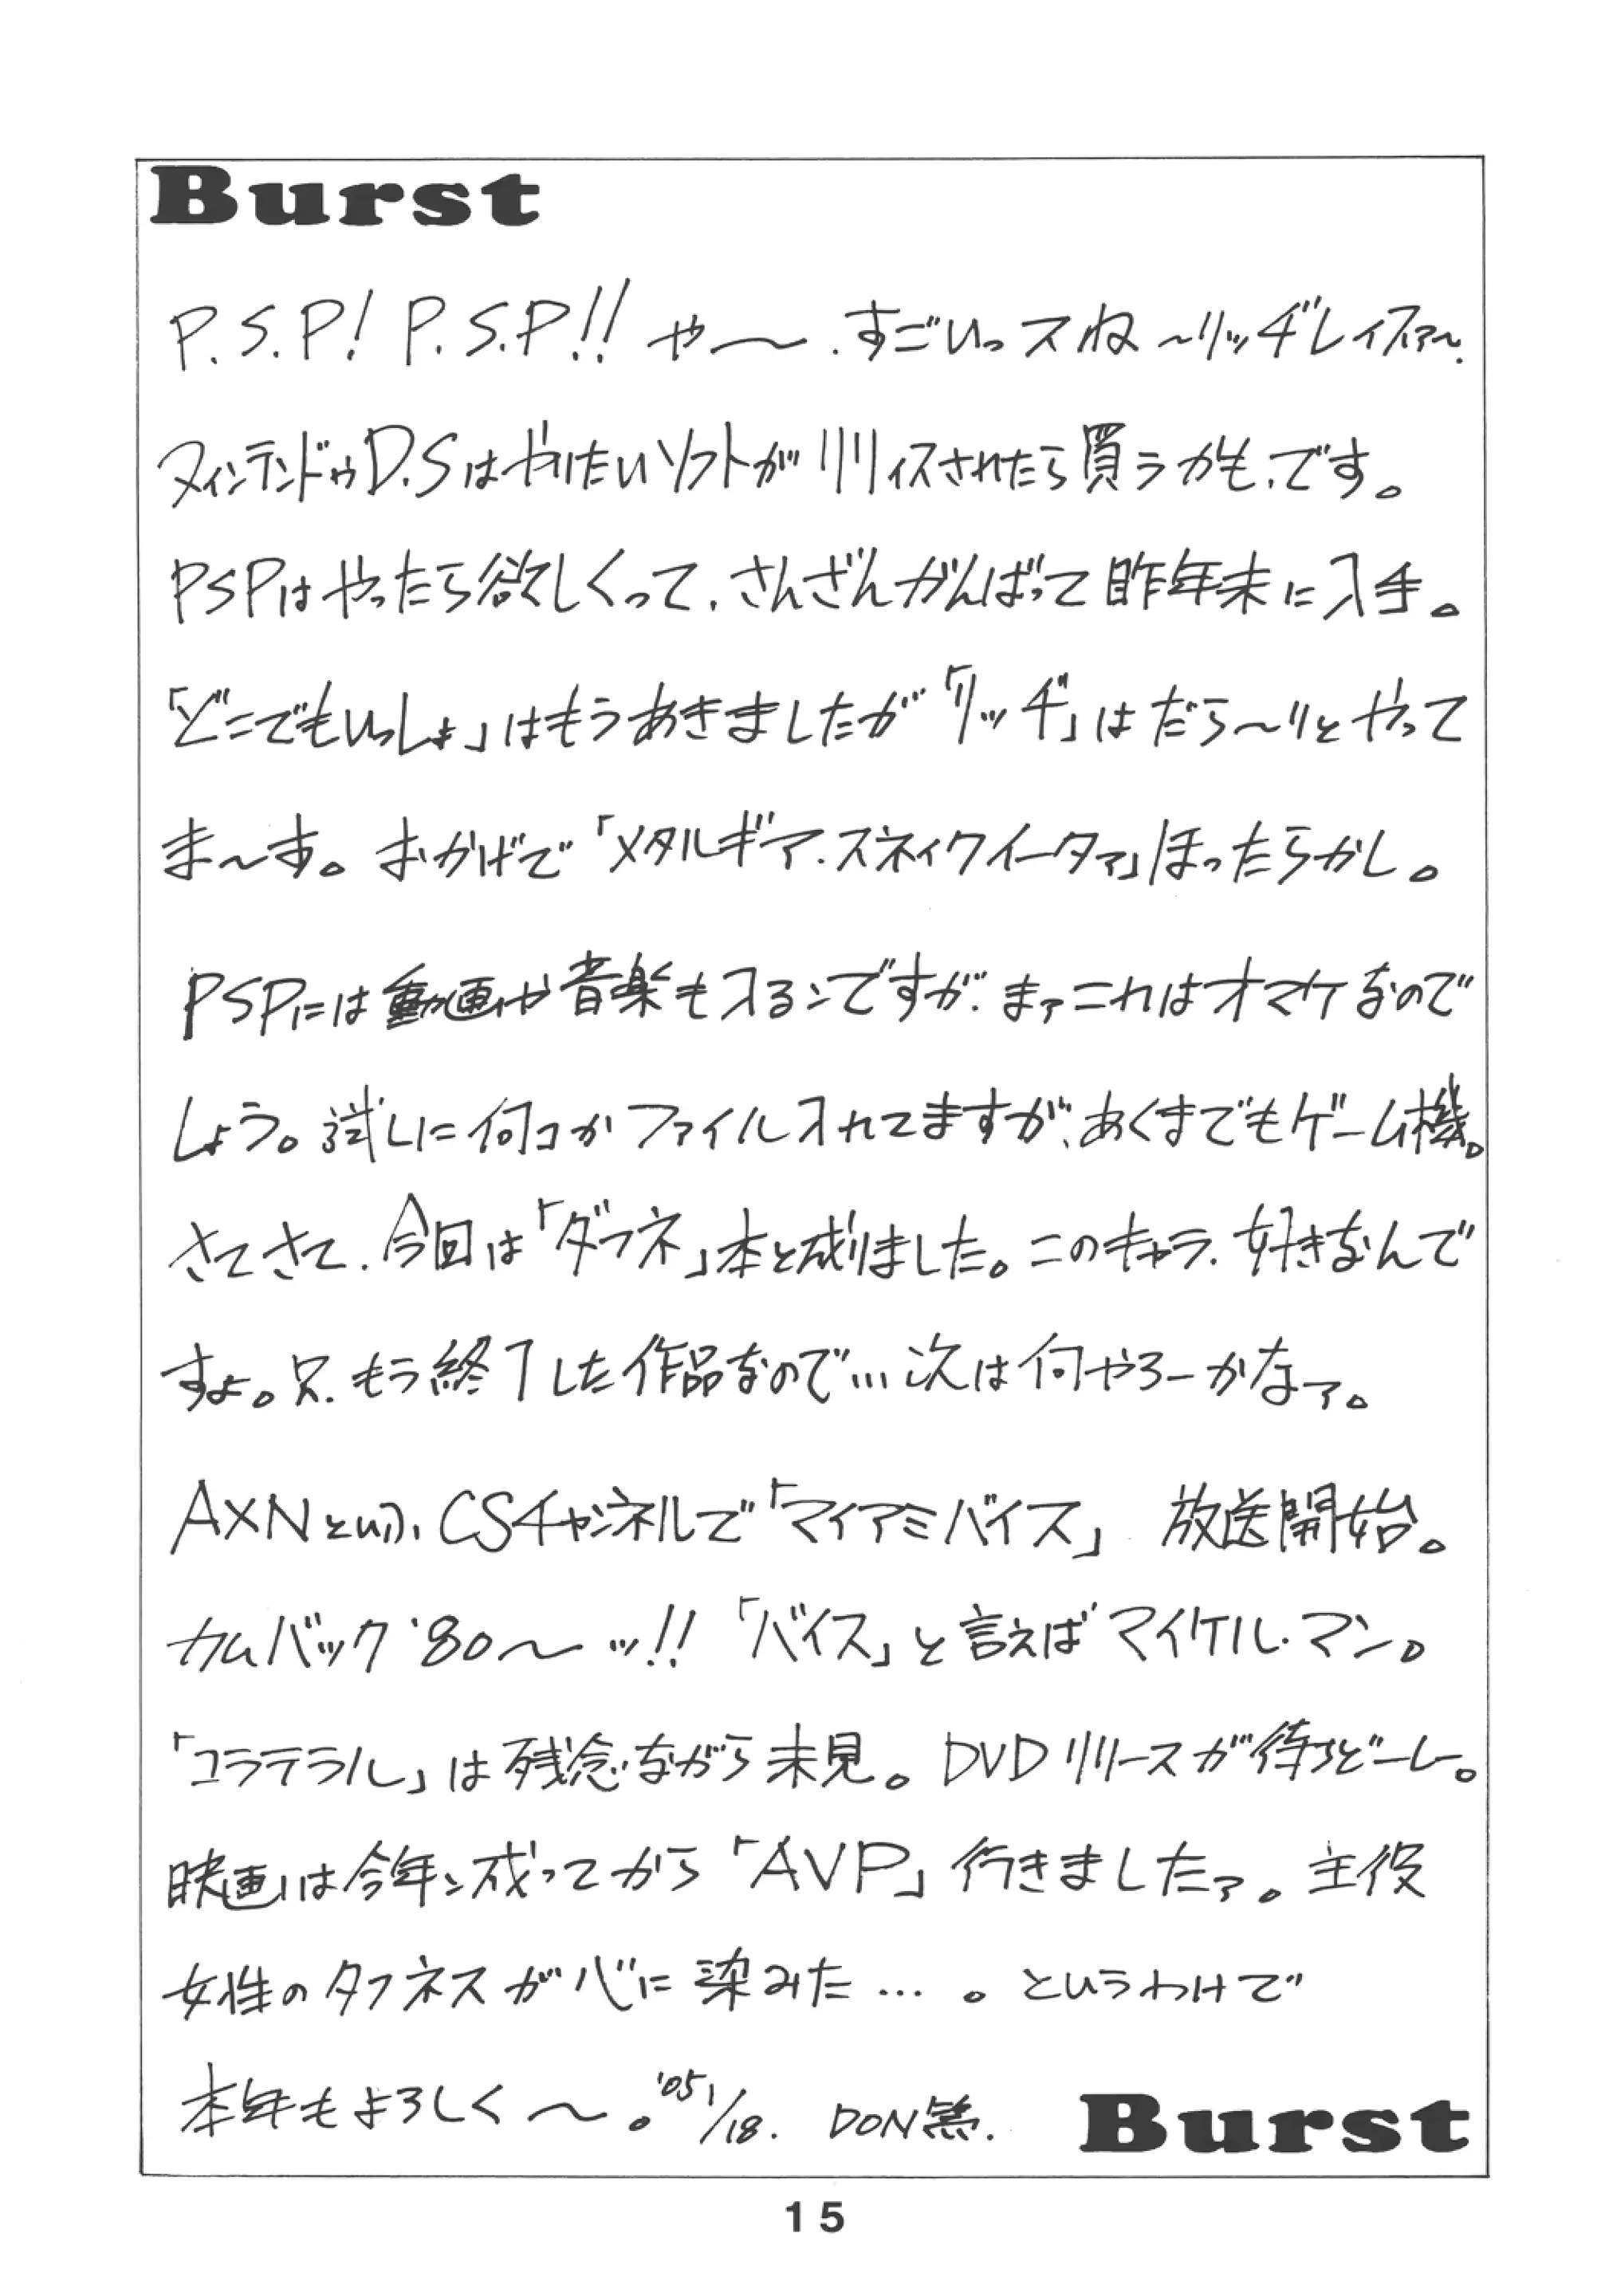 Burst
P.S.P! P.S.P!! や〜、すごいっスね〜リッヂレイスァ〜。
ヌィンテンドゥD.Sはやりたいソフトがリリィスされたら買うかも、です。
PSPはやったら欲しくって、さんざんがんばって昨年末に入手。
「どこでもいっしょ」はもうあきましたが「リッヂ」はだら〜りとやって
ま〜す。おかげで「メタルギア・スネィクイータァ」ほったらかし。
PSPには動画や音楽も入るンですが、まァこれはオマケなので
しょう。試しに何コかファイル入れてますが、あくまでもゲーム機。
さてさて、今回は「ダフネ」本と成りました。このキャラ、好きなんで
すよ。只、もう終了した作品なので…次は何やろーかなァ。
AXNというCSチャンネルで「マイアミバイス」 放送開始。
カムバック'80〜ッ!! 「バイス」と言えばマイケル・マン。
「コラテラル」は残念ながら未見。DVDリリースが待ちどーしー。
映画は今年ン成ってから「AVP」行きましたァ。主役
女性のタフネスが心に染みた…。というわけで
本年もよろしく〜。'05 1/18. DON繁.
Burst
15